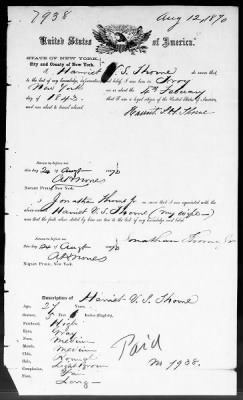 7938
Aug 12, 1870
United States of America.
STATE OF NEW YORK,
City and County of New York.
I Harriet V. S. Thorne do swear that
to the best of my knowledge, information and belief, I was born in Troy
New York on or about the 4th February
day of 1843 that I am a loyal citizen of the United States of America,
and am about to travel abroad.
Harriet V. S. Thorne
Sworn to before me
this day 20 of Augt 1870
Notary Public, New York.
I Jonathan Thorne Jr swear that I am acquainted with the above
Harriet V. S. Thorne (my wife)
that the facts above stated by her are true to the best of my knowledge and belief.
Jonathan Thorne Jr
Sworn to before me
this day 20 of Augt 1870
Notary Public, New York.
Description of Harriet V. S. Thorne
Age: 27 Years
Stature: 5 Feet 6 Inches (English).
Forehead: High
Eyes: Gray
Nose: Medium
Mouth: Medium
Chin: Round
Hair: Light Brown
Complexion: Fair
Face: Long
Paid
1938.